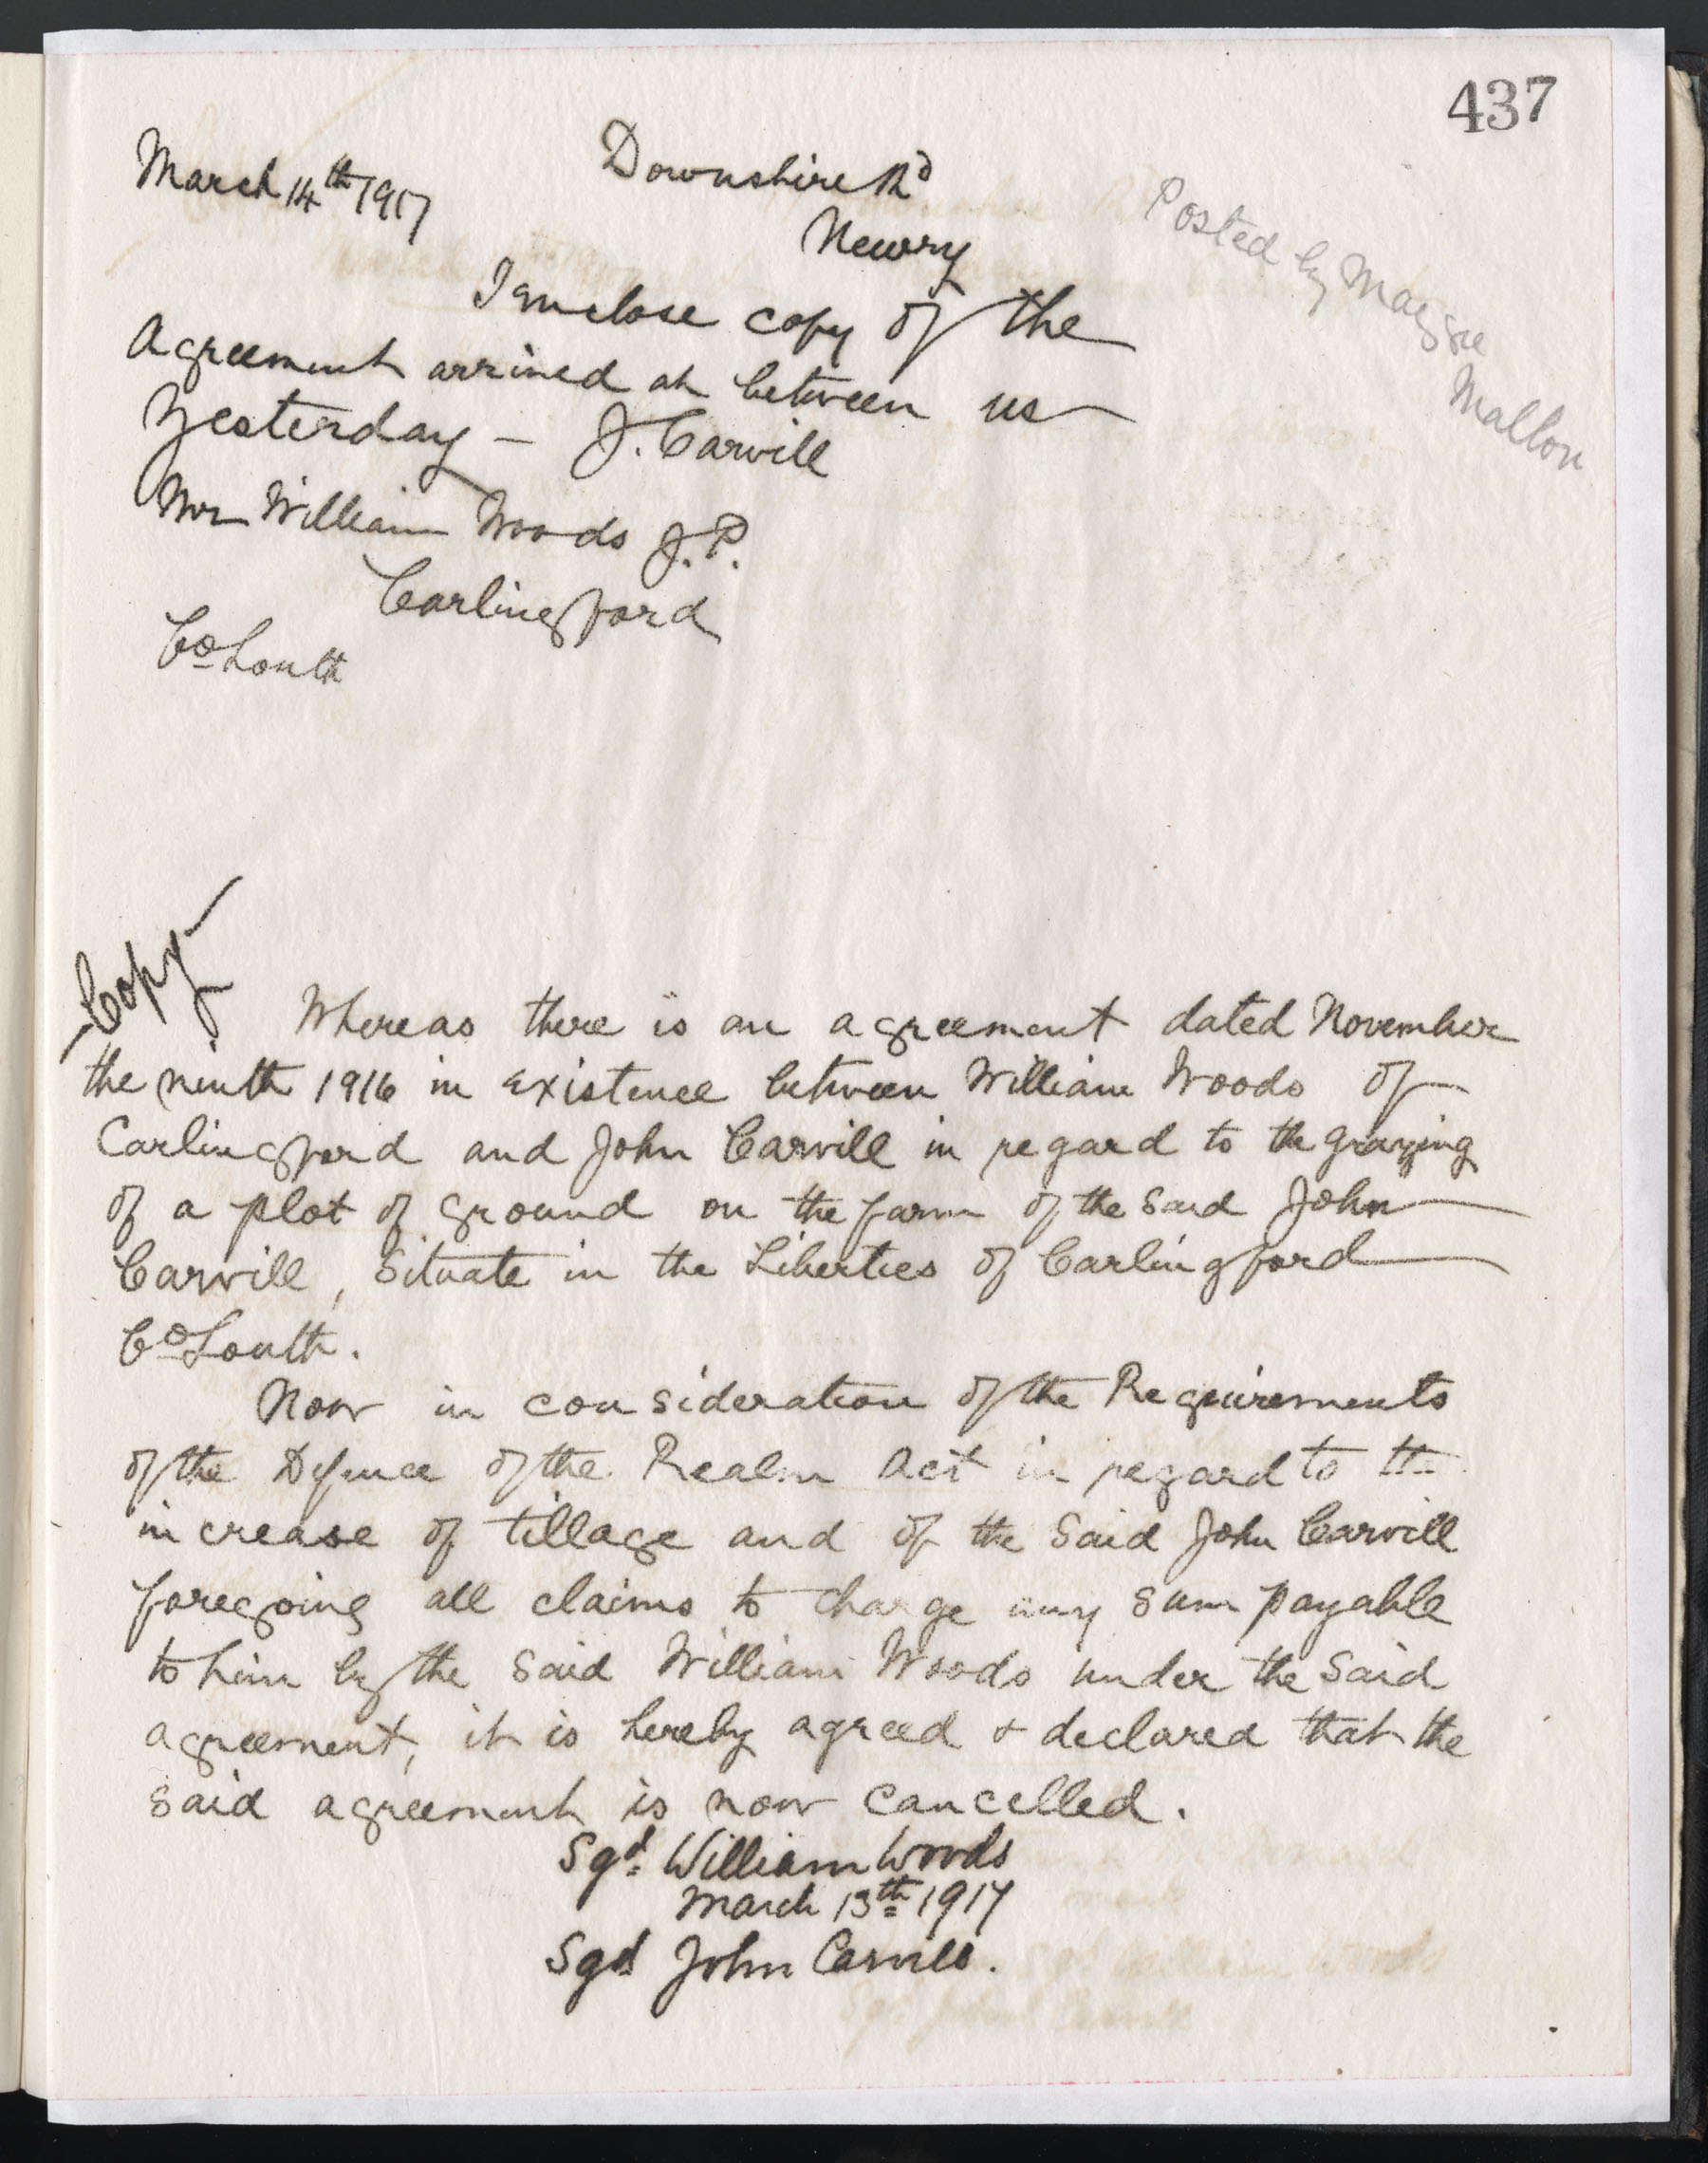 437
March 14th 1917
Downshire Rd
Newry
Posted by Maggie
Mallon
I enclose copy of the
Agreement arrived at between us
Yesterday - J. Carvill
Mr William Woods J.P.
Carlingford
Co Louth
Copy
Whereas there is an agreement dated November
the ninth 1916 in existence between William Woods of
Carlingford and John Carvill in regard to the grazing
of a plot of ground on the farm of the said John
Carvill, Situate in the Liberties of Carlingford
Co Louth.
Now in consideration of the Requirements
of the Defence of the Realm Act in regard to the
increase of tillage and of the Said John Carvill
foregoing all claims to charge any sum payable
to him by the said William Woods under the Said
agreement, it is hereby agreed & declared that the
said agreement is now cancelled.
Sgd. William Woods
March 13th 1917
Sgd John Carvill.